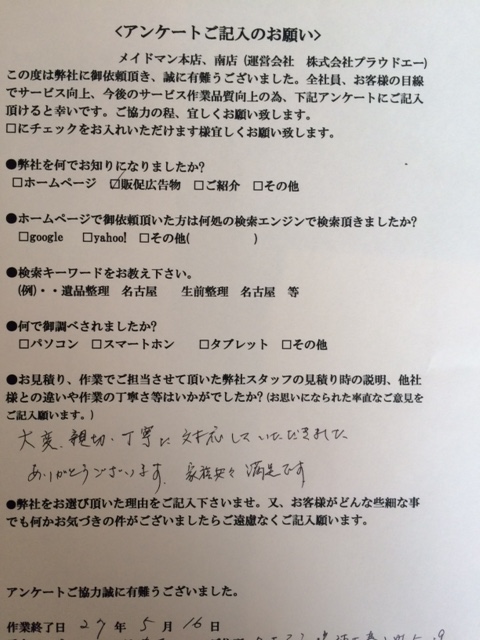 <アンケートご記入のお願い>
メイドマン本店、南店 (運営会社 株式会社プラウドエー)
この度は弊社に御依頼頂き、誠に有難うございました。全社員、お客様の目線
でサービス向上、今後のサービス作業品質向上の為、下記アンケートにご記入
頂けると幸いです。ご協力の程、宜しくお願い致します。
□にチェックをお入れいただけます様宜しくお願い致します。
●弊社を何でお知りになりましたか?
□ホームページ ☑販促広告物 □ご紹介 □その他
●ホームページで御依頼頂いた方は何処の検索エンジンで検索頂きましたか?
□google □yahoo! □その他( )
●検索キーワードをお教え下さい。
(例)・・遺品整理 名古屋 生前整理 名古屋 等
●何で御調べされましたか?
□パソコン □スマートホン □タブレット □その他
●お見積り、作業でご担当させて頂いた弊社スタッフの見積り時の説明、他社
様との違いや作業の丁寧さ等はいかがでしたか?(お思いになられた率直なご意見を
ご記入願います。)
大変、親切、丁寧に対応していただきました
ありがとうございます。家族共々満足です
●弊社をお選び頂いた理由をご記入下さいませ。又、お客様がどんな些細な事
でも何かお気づきの件がございましたらご遠慮なくご記入願います。
アンケートご協力誠に有難うございました。
作業終了日 27 年 5 月 16 日